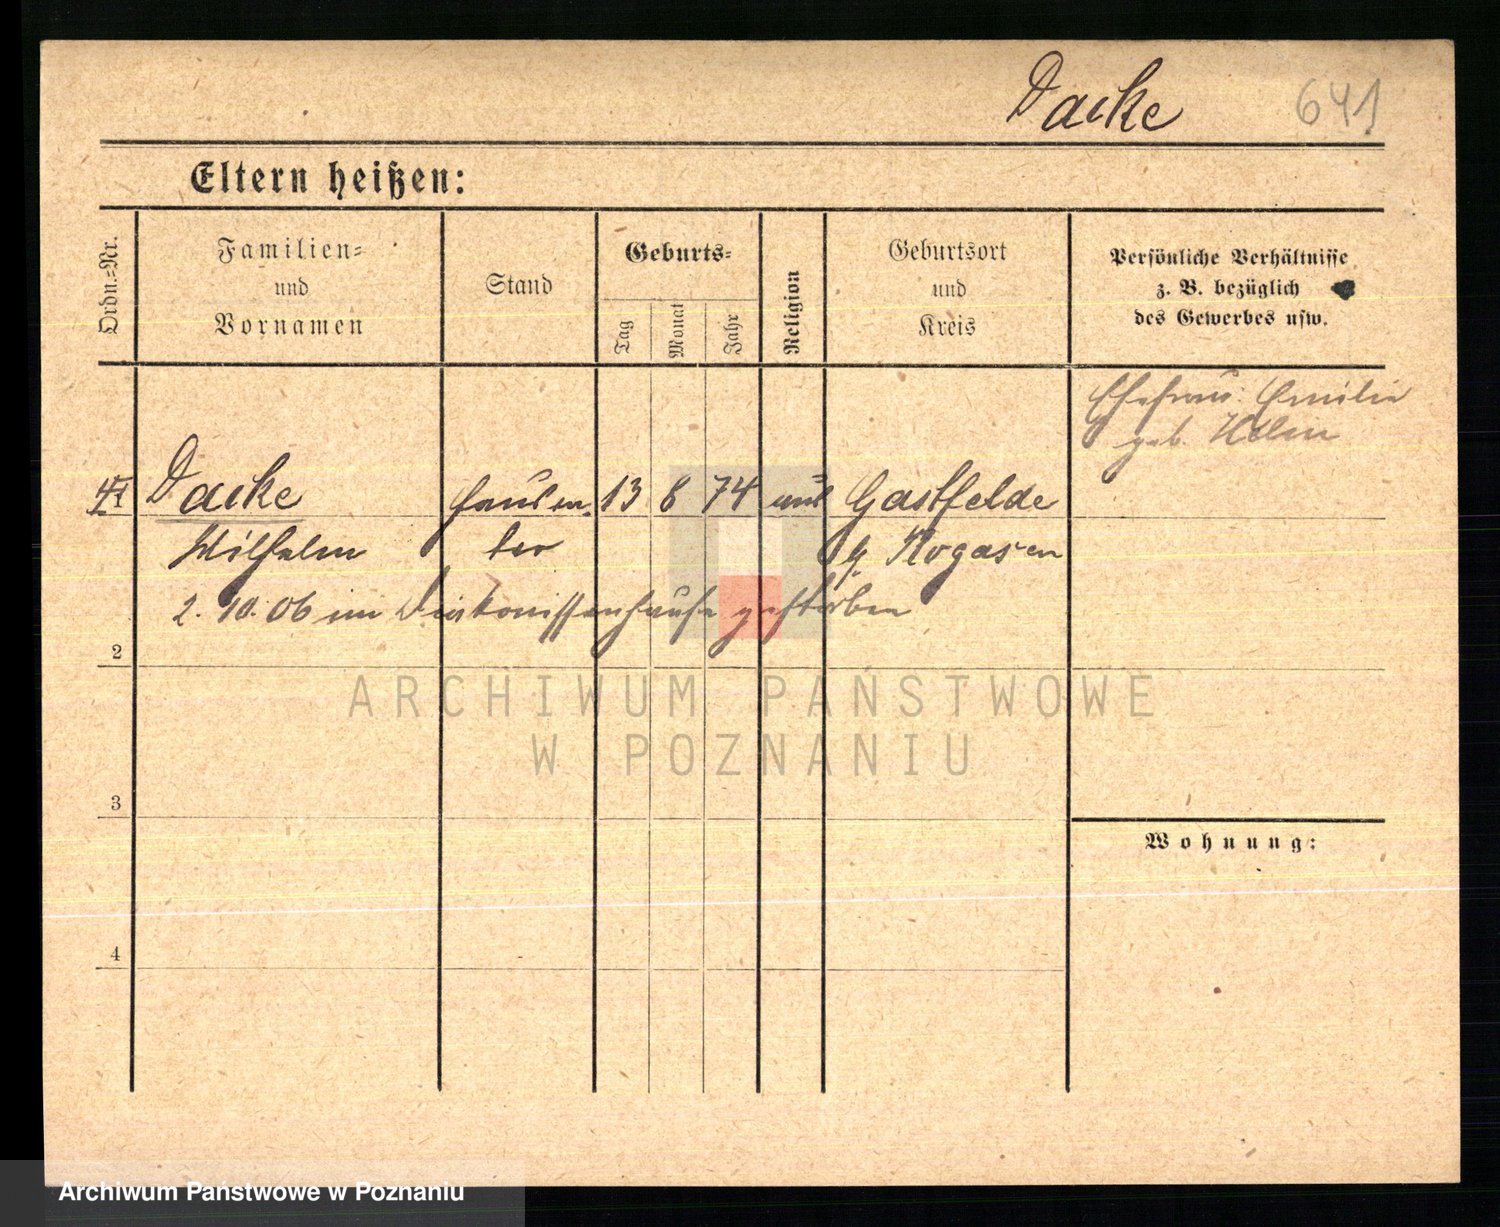 Dacke 641
Eltern heißen:
Ordn.-Nr.
Familien-
und
Vornamen
Stand
Geburts-
Tag
Monat
Jahr
Religion
Geburtsort
und
Kreis
Persönliche Verhältnisse
z. B. bezüglich
des Gewerbes usw.
Ehefrau: Emilie
geb.
Dacke 13 8 74 Gastfelde
Wilhelm Rogasen
2. 10. 06 im Diakonissenhause gestorben
2
3
4
Wohnung:
ARCHIWUM PAŃSTWOWE
W POZNANIU
Archiwum Państwowe w Poznaniu